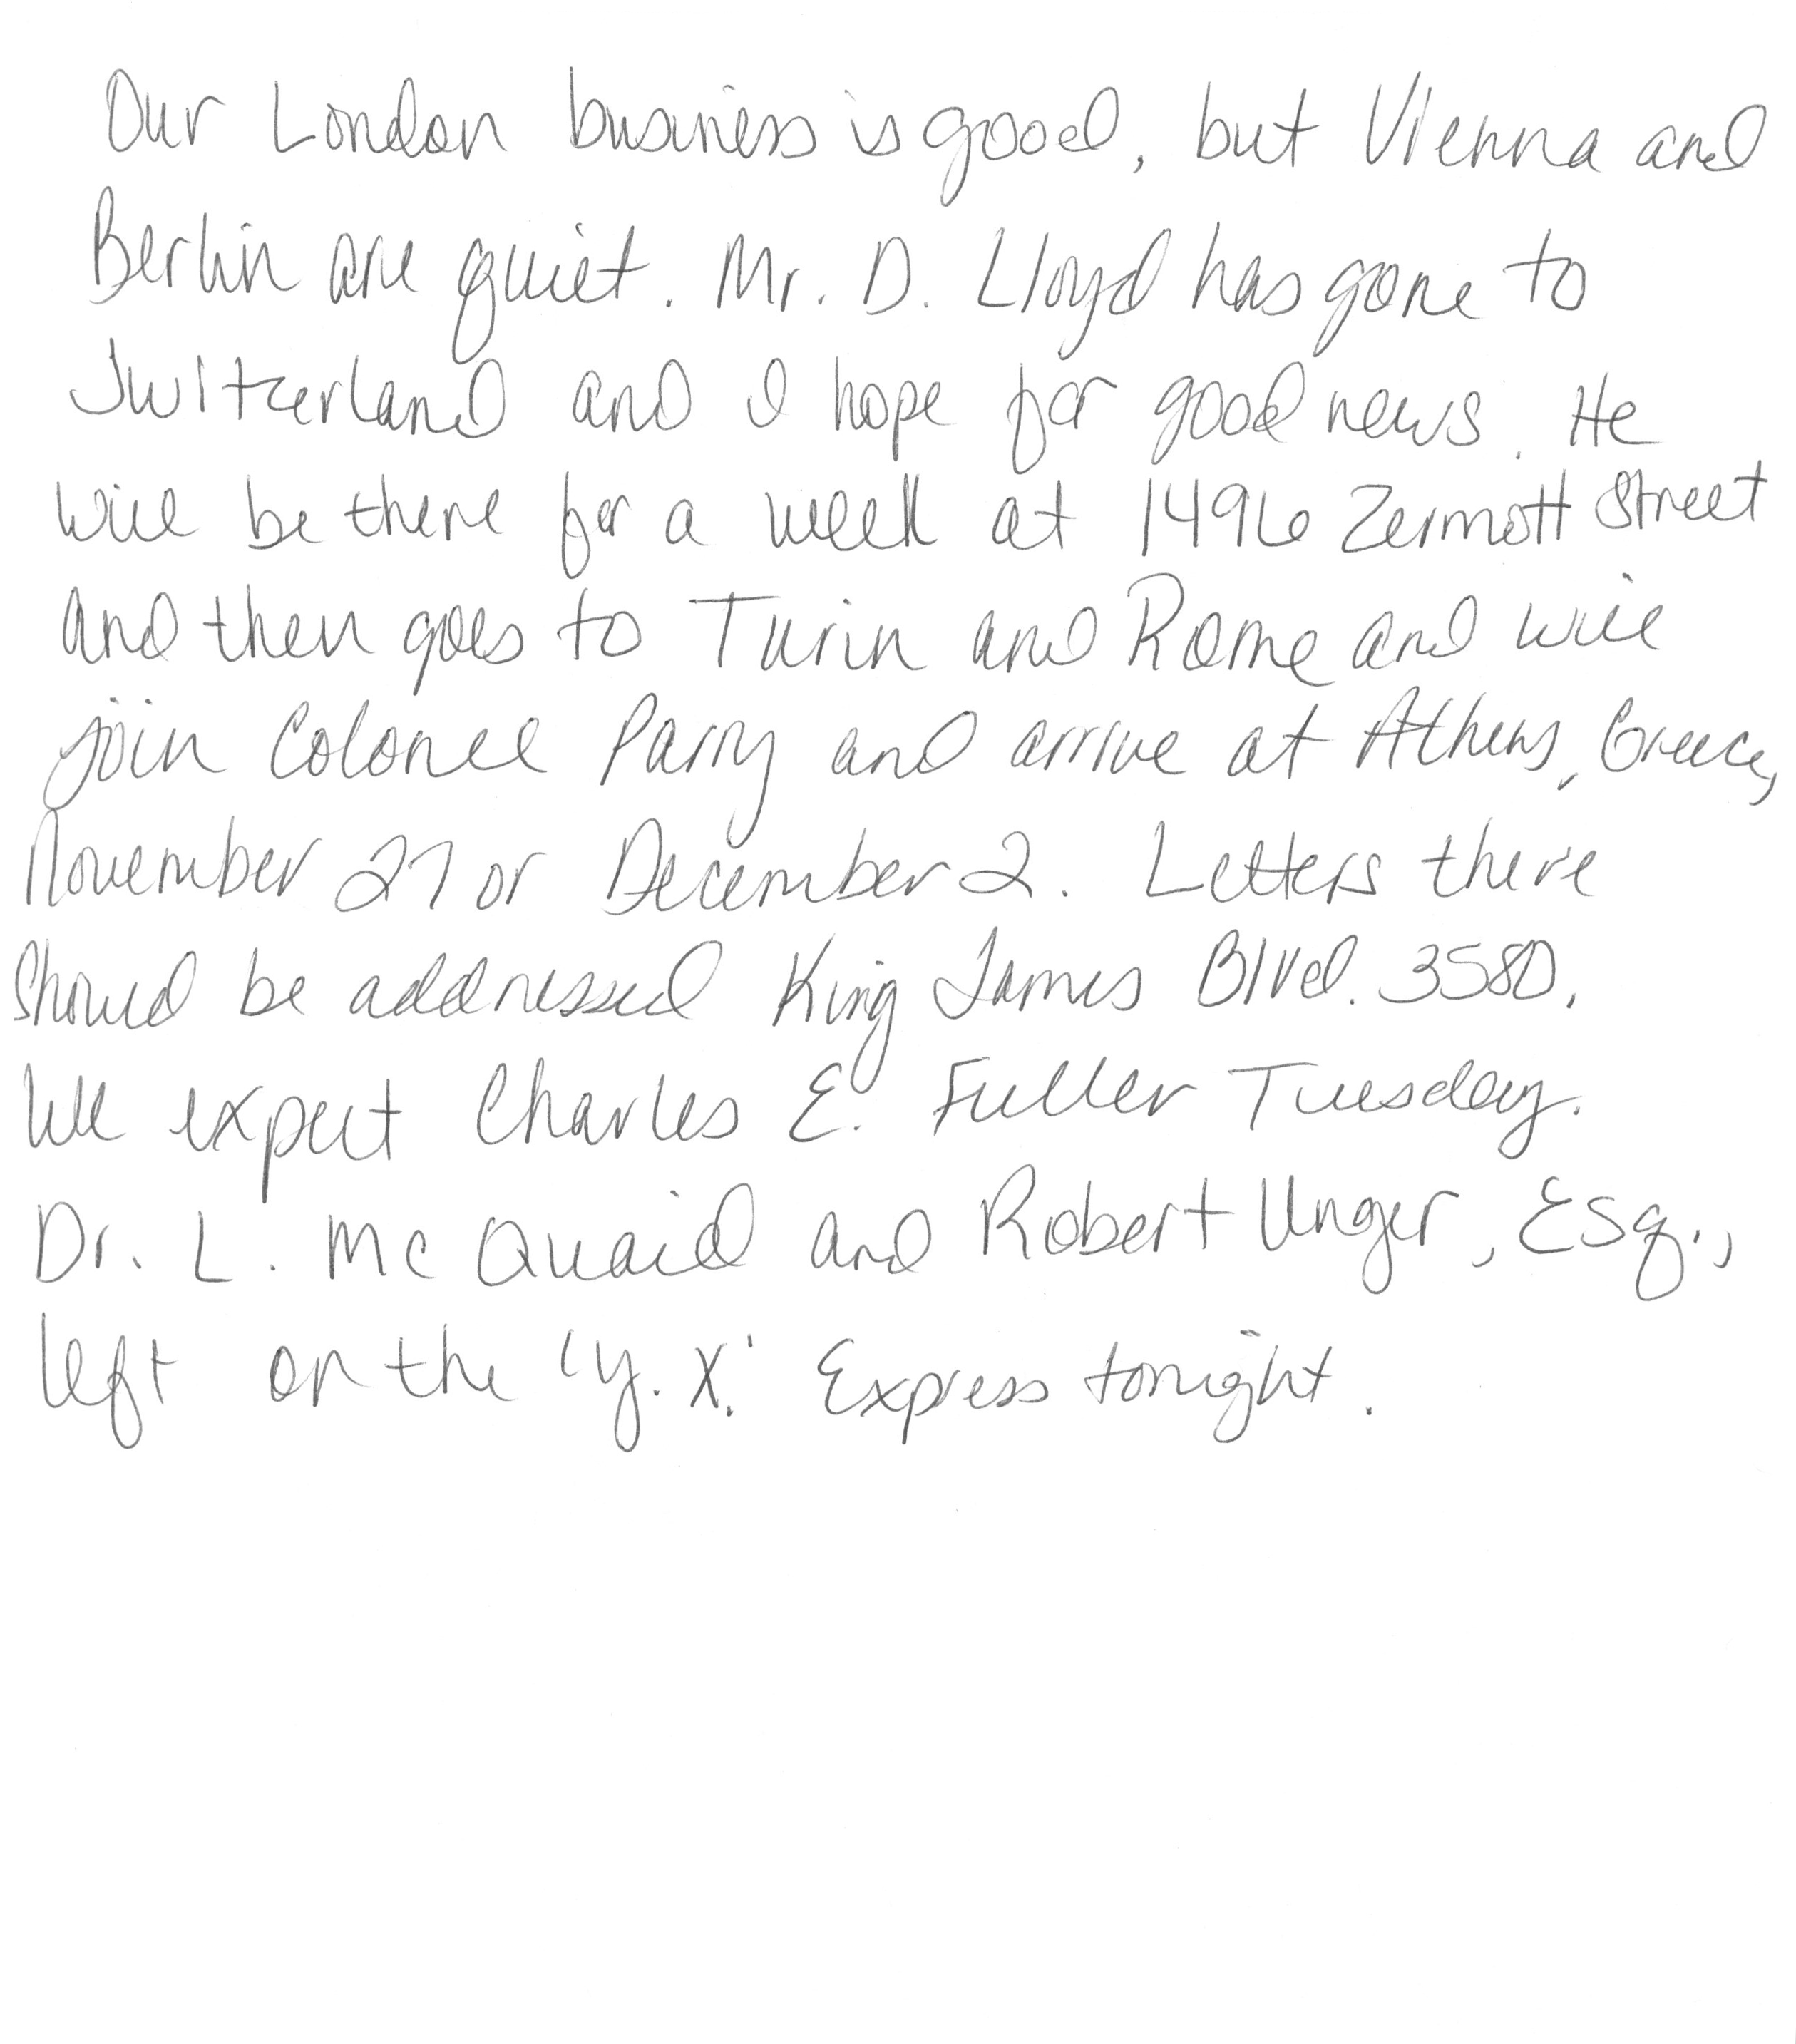 Our London business is good, but Vienna and
Berlin are quiet. Mr. D. Lloyd has gone to
Switzerland and I hope for good news. He
will be there for a week at 1496 Zermott Street
and then goes to Turin and Rome and will
join Colonel Parry and arrive at Athens, Greece,
November 27 or December 2. Letters there
should be addressed King James Blvd. 3580.
We expect Charles E. Fuller Tuesday.
Dr. L. Mc Quaid and Robert Unger, Esq.,
left on the 'Y. X.' Express tonight.